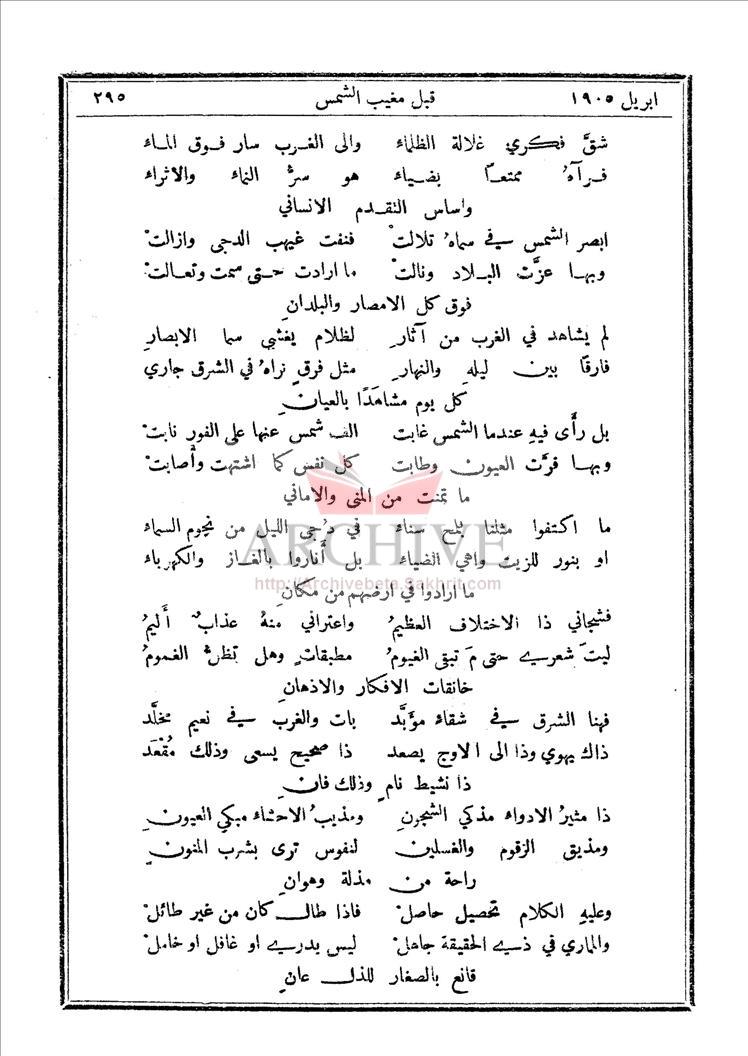 ابريل ١٩٠٥ قبل مغيب الشمس ٢٩٥
شقَّ فكري غلالة الظلماء والى الغرب سار فوق الماء
فرآهُ ممتعاً بضياء هو سرُّ النماء والاثراء
واساس التقدم الانساني
ابصر الشمس في سماهُ تلالتْ فنفت غيهب الدجى وازالتْ
وبها عزَّت البلاد ونالتْ ما ارادت حتى سمت وتعالتْ
فوق كل الامصار والبلدانِ
لم يشاهد في الغرب من آثارِ لظلام يغشي سما الابصارِ
فارقًا بين ليلهِ والنهارِ مثل فرقٍ نراهُ في الشرق جاري
كل يوم مشاهَدًا بالعيانِ
بل رأى فيهِ عندما الشمس غابت الف شمس عنها على الفور نابتْ
وبها قرَّت العيون وطابت كل نفس كما اشتهت وأصابتْ
ما تمنت من المنى والاماني
ما اكتفوا مثلنا بلمح سناء في دُجى الليل من نجوم السماء
او بنور للزيت واهي الضياء بل أناروا بالغاز والكهرباء
ARCHIVE
http://Archivebeta.Sakhrit.com
ما ارادوا في ارضهم من مكانِ
فشجاني ذا الاختلاف العظيمُ واعتراني منهُ عذابٌ أليمُ
ليتَ شعري حتى مَ تبقى الغيومُ مطبقاتٍ وهل تظلُّ الغمومُ
خانقات الافكار والاذهانِ
فهنا الشرق في شقاء مؤبَّد بات والغرب في نعيم مخلَّد
ذاك يهوي وذا الى الاوج يصعد ذا صحيح يسعى وذلك مُقْعَد
ذا نشيط نامٍ وذلك فانِ
ذا مثيرُ الادواء مذكي الشجونِ ومذيبُ الاحشاء مبكي العيونِ
ومذيق الزقوم والغسلين لنفوس ترى بشرب المنونِ
راحة من مذلة وهوانِ
وعليهِ الكلام تحصيل حاصلْ فاذا طال كان من غير طائلْ
والماري في ذي الحقيقة جاهلْ ليس يدري او غافل او خاملْ
قانع بالصغار للذل عانِ